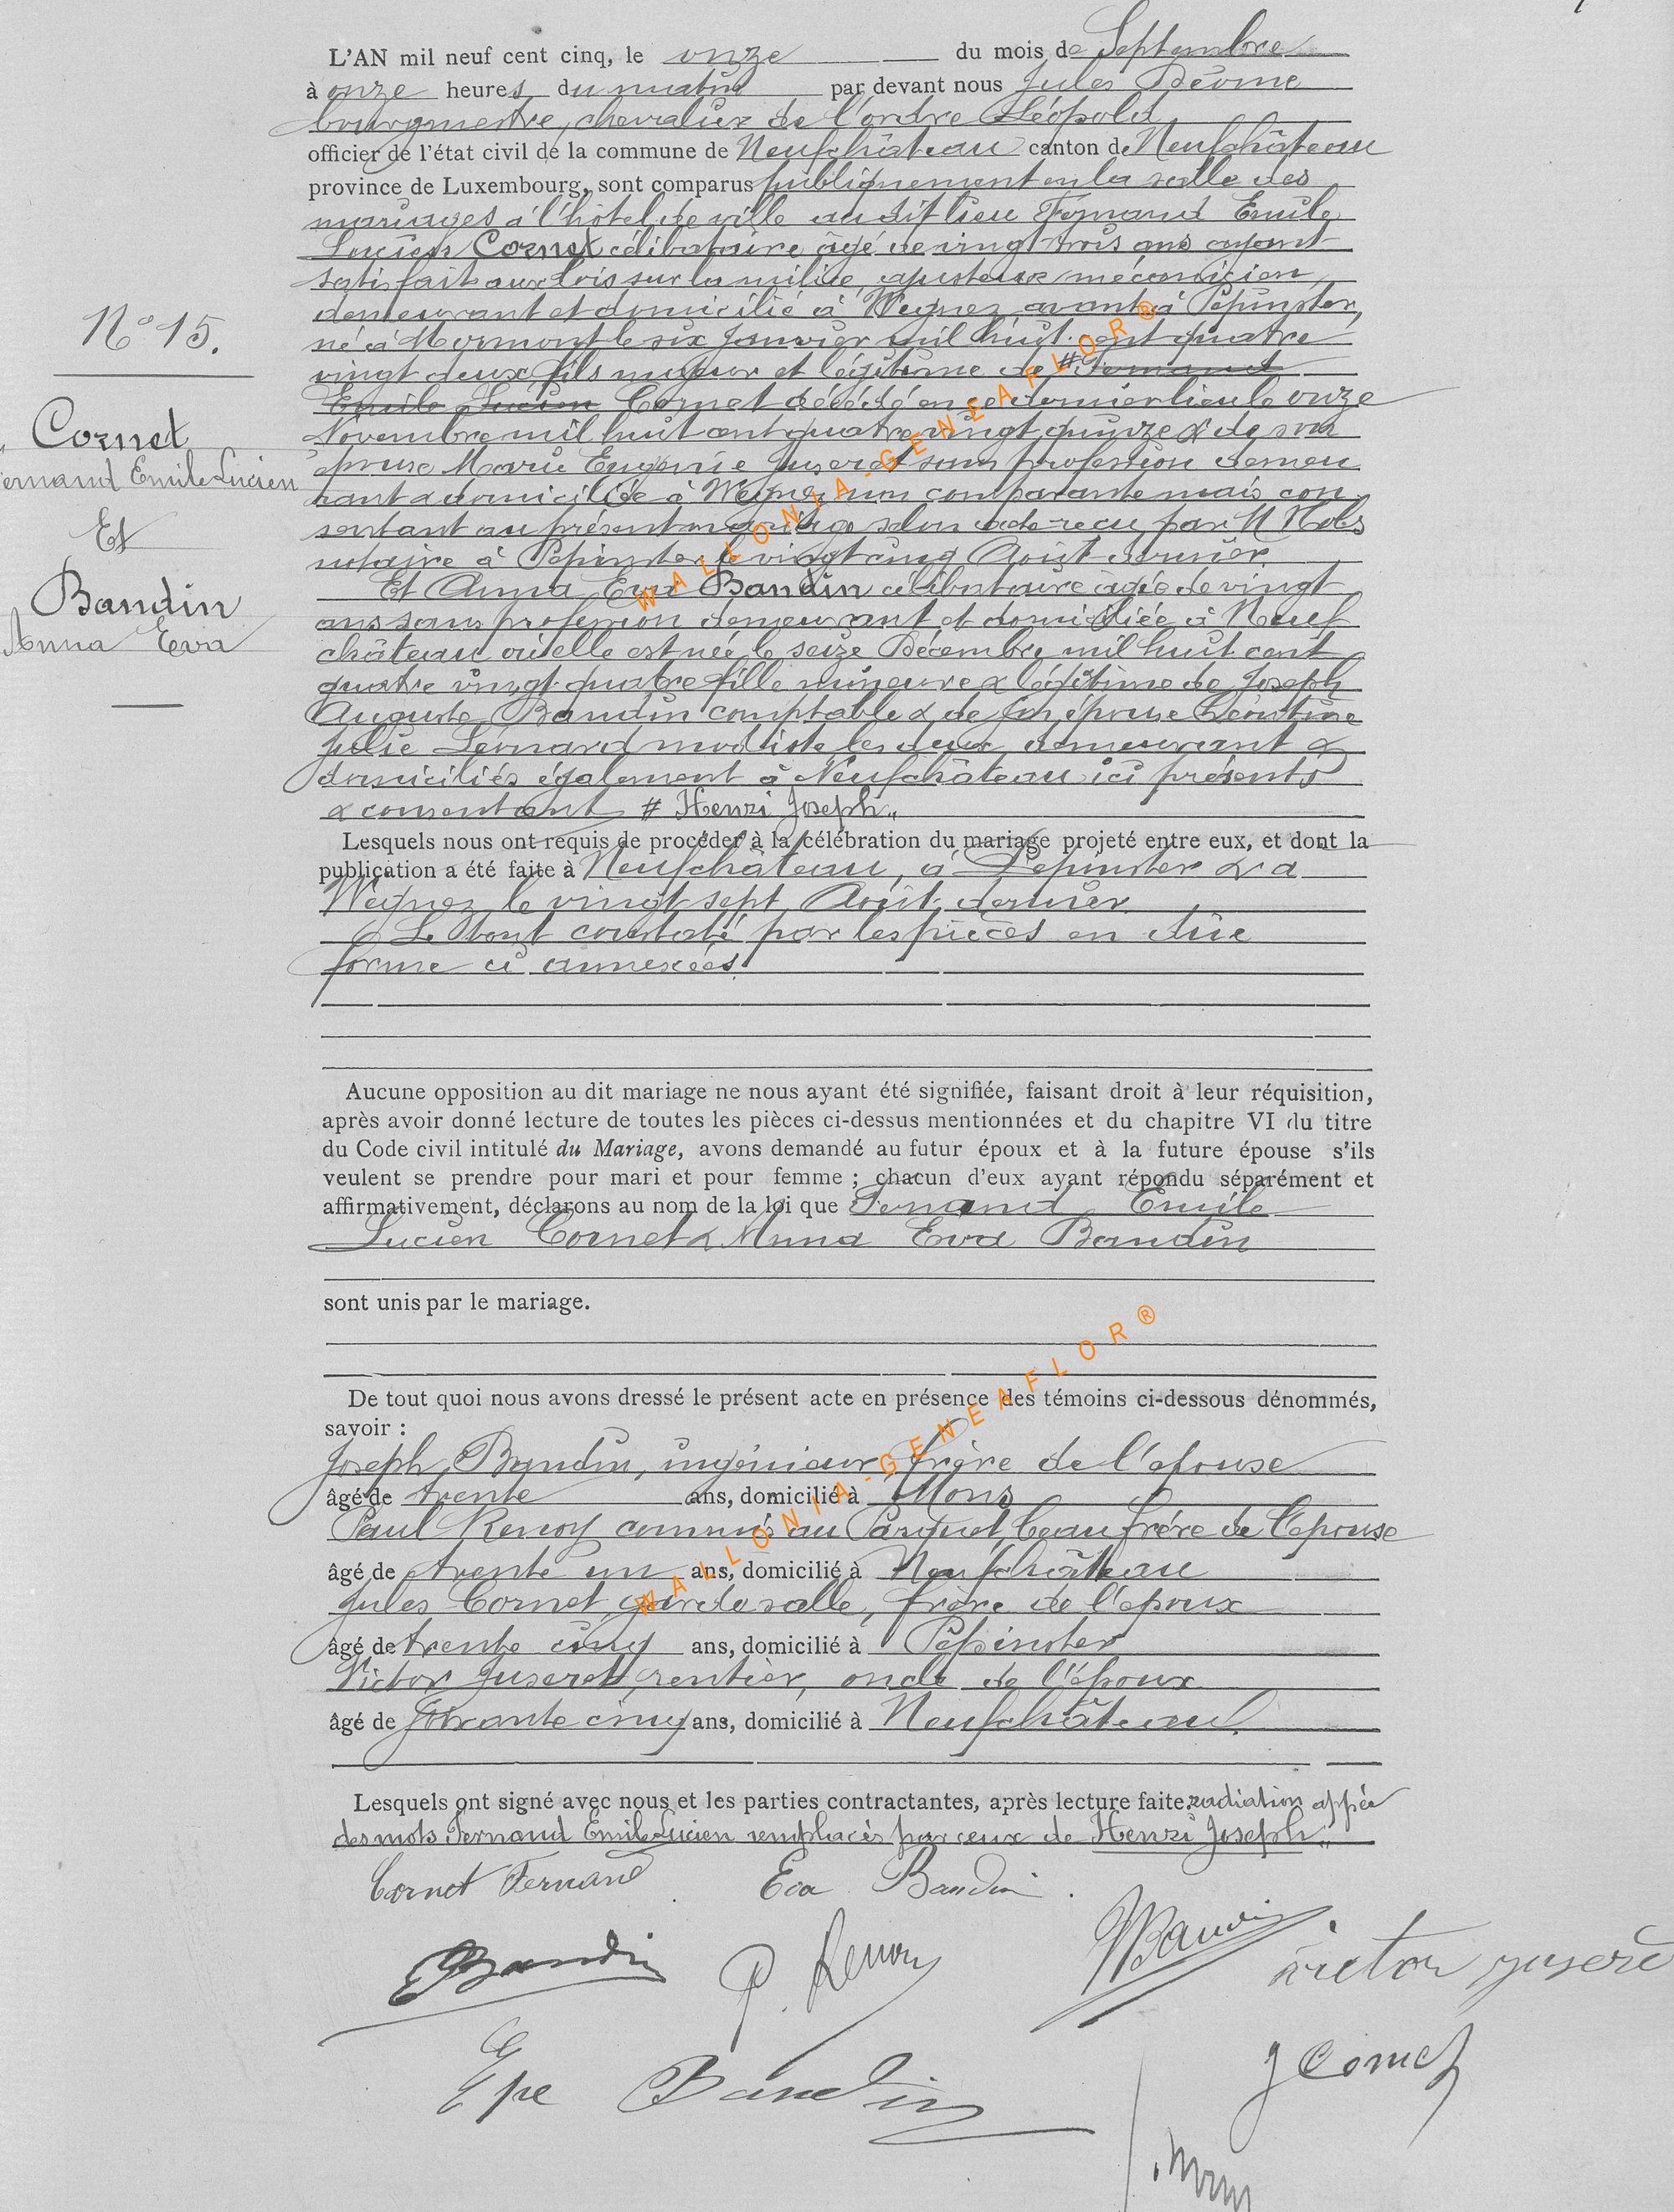 L'AN mil neuf cent cinq, le onze du mois de Septembre
à onze heures du matin par devant nous Jules
bourgmestre, chevalier de l'ordre Léopold
officier de l'état civil de la commune de Neufchâteau canton de Neufchâteau
province de Luxembourg, sont comparus publiquement en la salle des
mariages à l'hôtel de ville au dit lieu Fernand Emile
Lucien Cornet célibataire âgé de vingt trois ans ayant
satisfait aux lois sur la milice, ajusteur mécanicien,
demeurant et domicilié à Wegnez avant à Pepinster,
né à Mormont le six Janvier mil huit cent quatre
vingt deux fils majeur et légitime de # Fernand
Emile Lucien Cornet décédé en ce dernier lieu le onze
Novembre mil huit cent quatre vingt quinze & de son
épouse Marie Eugénie Juseret sans profession demeu
rant & domiciliée à Wegnez non comparante mais con
sentant au présent mariage selon acte reçu par
notaire à Pepinster le vingt cinq Août dernier
Et Anna Eva Baudin célibataire âgée de vingt
ans sans profession demeurant et domiciliée à Neuf
château où elle est née le seize Décembre mil huit cent
quatre vingt quatre fille mineure & légitime de Joseph
Auguste Baudin comptable & de son épouse Léontine
Julie Léonard modiste les deux demeurant &
domiciliés également à Neufchâteau ici présents
& consentant # Henri Joseph "
N° 15.
Cornet
Fernand Emile Lucien
Et
Baudin
Anna Eva
Lesquels nous ont requis de procéder à la célébration du mariage projeté entre eux, et dont la
publication a été faite à Neufchâteau, à Pepinster & à
Wegnez le vingt sept Août dernier
Le tout constaté par les pièces en due
forme ci annexées.
Aucune opposition au dit mariage ne nous ayant été signifiée, faisant droit à leur réquisition,
après avoir donné lecture de toutes les pièces ci-dessus mentionnées et du chapitre VI du titre
du Code civil intitulé du Mariage, avons demandé au futur époux et à la future épouse s'ils
veulent se prendre pour mari et pour femme ; chacun d'eux ayant répondu séparément et
affirmativement, déclarons au nom de la loi que Fernand Emile
Lucien Cornet & Anna Eva Baudin
sont unis par le mariage.
De tout quoi nous avons dressé le présent acte en présence des témoins ci-dessous dénommés,
savoir :
Joseph Baudin, ingénieur frère de l'épouse
âgé de trente ans, domicilié à Mons
Paul Renoy commis au Parquet, beau frère de l'épouse
âgé de trente un ans, domicilié à Neufchâteau
Jules Cornet garde salle, frère de l'époux
âgé de trente cinq ans, domicilié à Pepinster
Victor Juseret rentier, oncle de l'époux
âgé de soixante cinq ans, domicilié à Neufchâteau
Lesquels ont signé avec nous et les parties contractantes, après lecture faite. radiation appée
des mots Fernand Emile Lucien remplacés par ceux de Henri Joseph "
Cornet Fernand Eva Baudin
Baudin P. Renoy Baudin victor juseré
Epe Baudin J Cornet
WALLONIA-GENEAFLOR®
WALLONIA-GENEAFLOR®